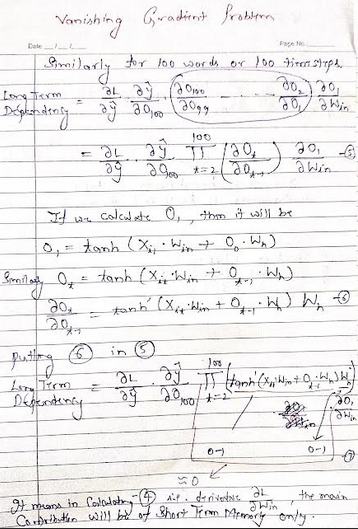 Vanishing Gradient Problem
Date __/__/__ Page No.
Similarly for 100 words or 100 timesteps
Long Term Dependency = ∂L/∂ŷ · ∂ŷ/∂O₁₀₀ (∂O₁₀₀/∂O₉₉ - - - - ∂O₂/∂O₁) ∂O₁/∂Win
= ∂L/∂ŷ · ∂ŷ/∂O₁₀₀ ¹⁰⁰∏ₜ₌₂ (∂Oₜ/∂Oₜ₋₁) ∂O₁/∂Win -⑤
If we calculate O₁, then it will be
O₁ = tanh (Xᵢ₁·Win + O₀·Wh)
Similarly Oₜ = tanh (Xᵢₜ·Win + Oₜ₋₁·Wh)
∂Oₜ/∂Oₜ₋₁ = tanh' (Xᵢₜ·Win + Oₜ₋₁·Wh) Wh -⑥
putting ⑥ in ⑤
Long Term Dependency = ∂L/∂ŷ · ∂ŷ/∂O₁₀₀ ¹⁰⁰∏ₜ₌₂ (tanh'(Xᵢₜ·Win + Oₜ₋₁·Wh)Wh) · ∂O₁/∂Win
0-1 0-1 -⑦
≈0
It means in Calculation -④ i.e. derivative ∂L/∂Win, the main
Contribution will be of Short Term Memory only.